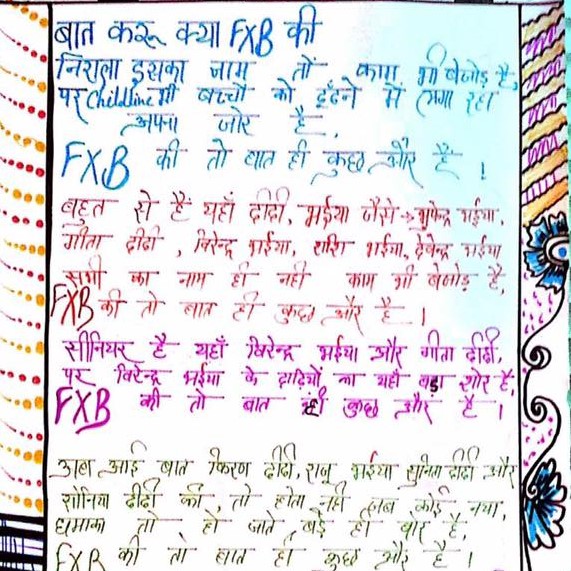 बात करू क्या FXB की
निराला इसका नाम तो काम भी बेजोड़ है,
पर Childline भी बच्चों को ढूँढने में लगा रहा
अपना जोर है,
FXB की तो बात ही कुछ और है !
बहुत से हैं यहाँ दीदी, भईया जैसे → भुपेन्द्र भईया,
गीता दीदी, विरेन्द्र भईया, शशि भईया, देवेन्द्र भईया
सभी का नाम ही नही काम भी बेजोड़ है,
FXB की तो बात ही कुछ और है ।
सीनियर है यहाँ विरेन्द्र भईया और गीता दीदी,
पर विरेन्द्र भईया के दाढ़ियों का यहाँ बड़ा शोर है,
FXB की तो बात ही कुछ और है ।
अब आई बात किरण दीदी, राजू भईया सुनिता दीदी और
सोनिया दीदी की, तो होता नही जब कोई नया,
धमाका तो हो जाते बड़े ही बोर है,
FXB की तो बात ही कुछ और है ।